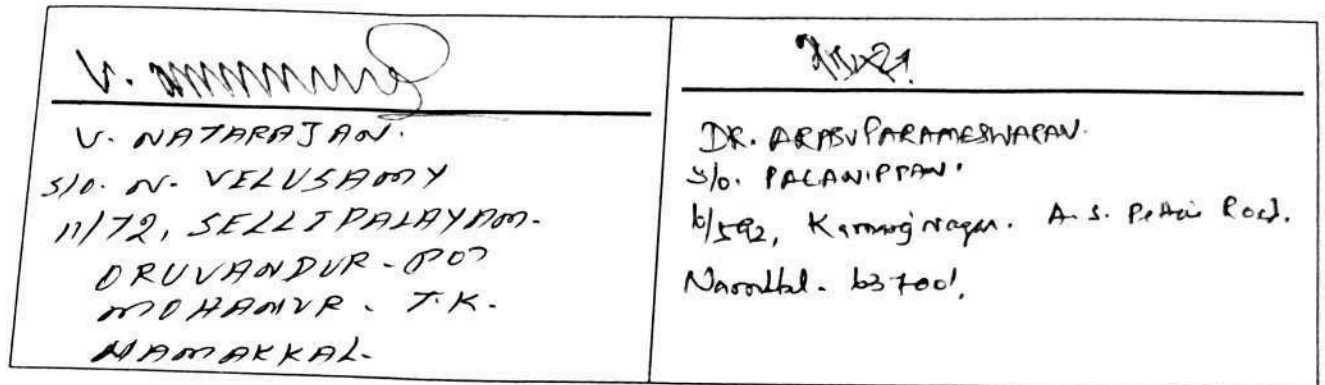 V.
V. NATARAJAN.
S/O. N. VELUSAMY
11/72, SELLIPALAYAM.
ORUVANDUR - PO
MOHANUR. T.K.
NAMAKKAL.
DR. ARASU PARAMESWARAN.
S/o. PALANIPPAN.
6/592, Nagar. A. S. Pettai Road.
Namakkal - 637001.